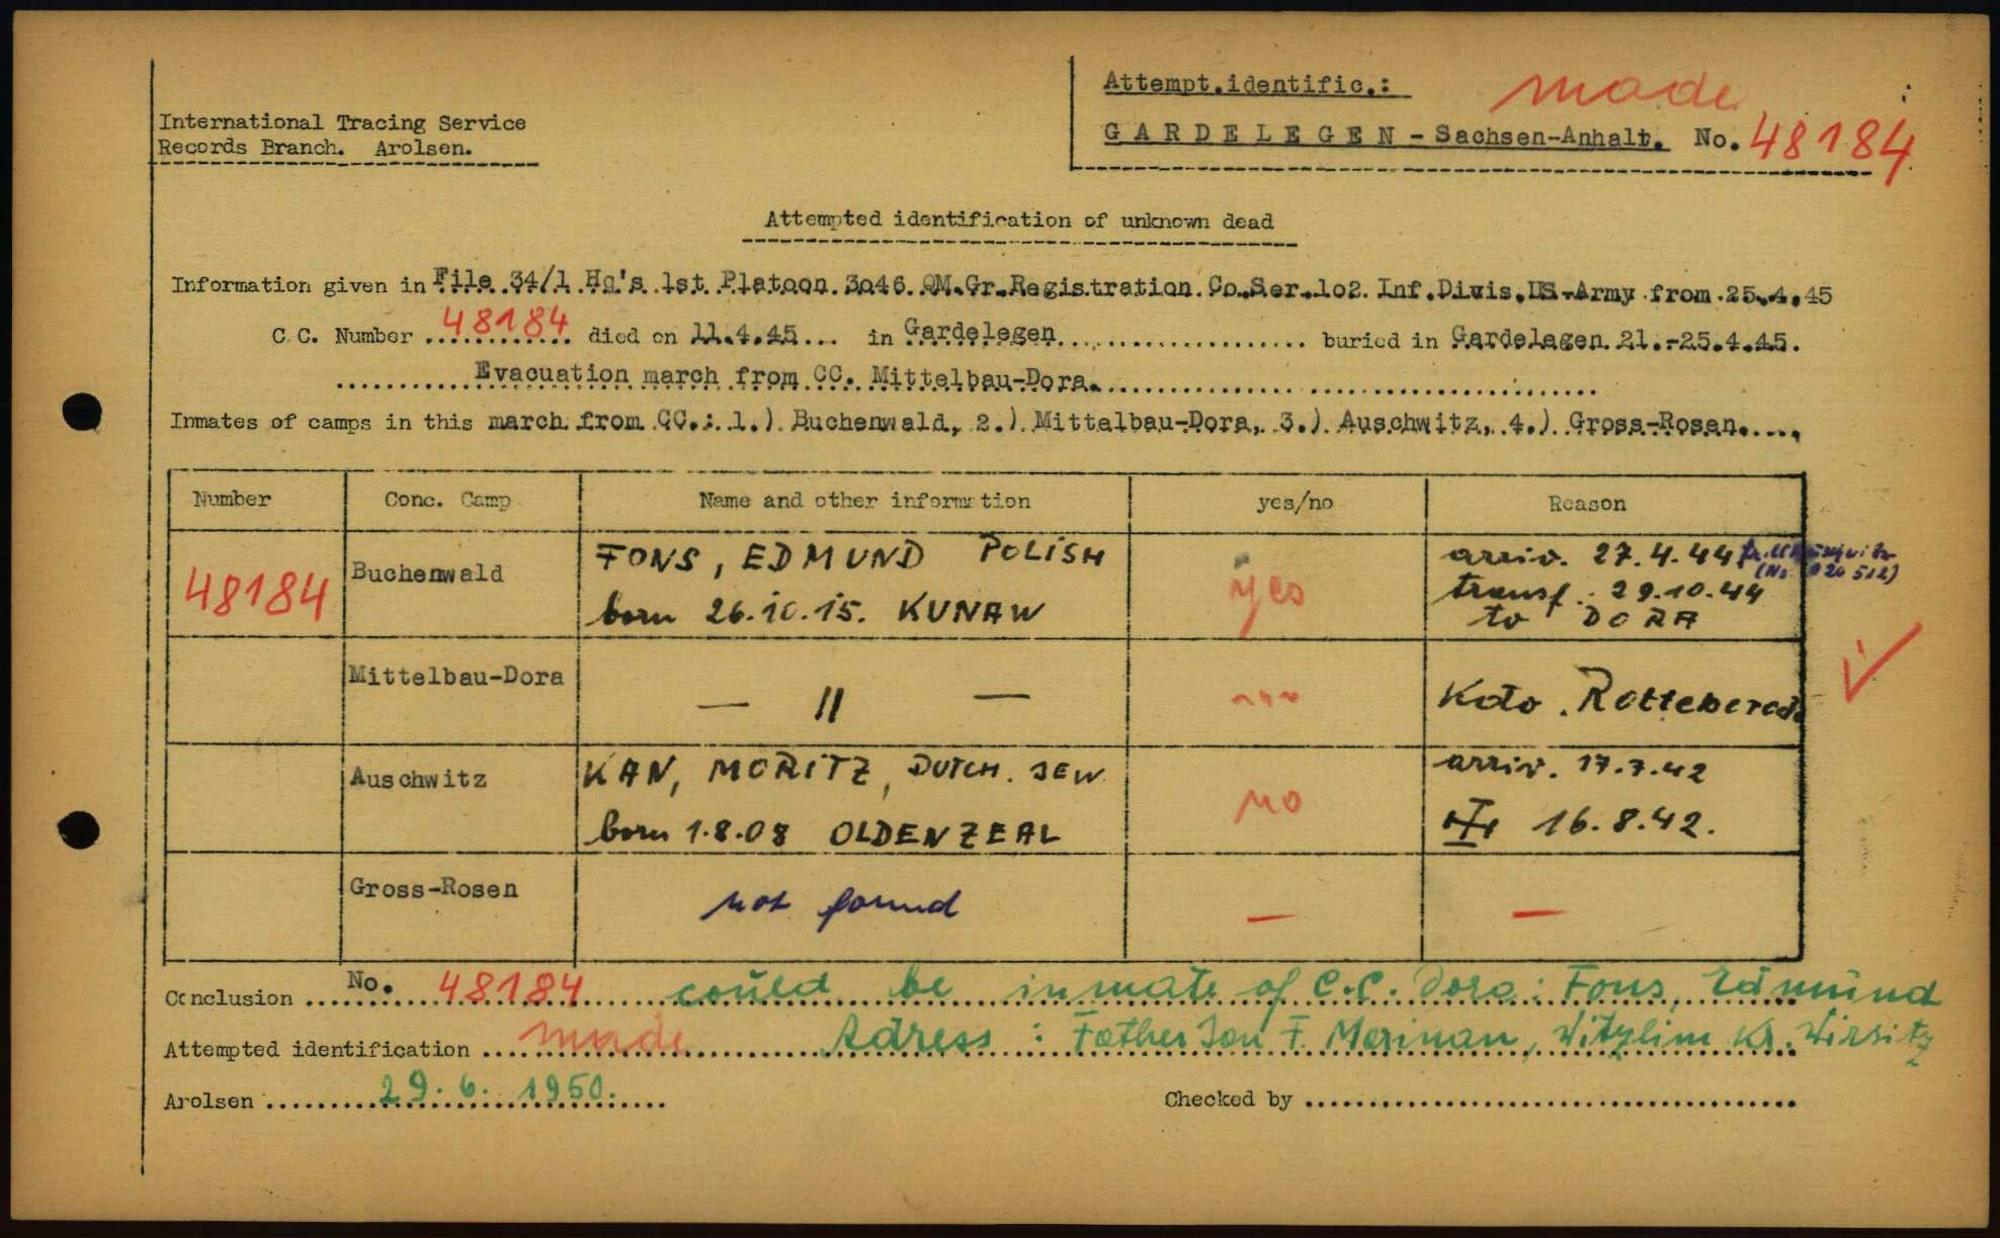 Attempt.identific.: made
International Tracing Service
Records Branch. Arolsen.
GARDELEGEN - Sachsen-Anhalt. No. 48184
Attempted identification of unknown dead
Information given in File 34/1 Hq's 1st Platoon 3o46 QM.Gr.Registration Co.Ser.1o2 Inf.Divis.US-Army from 25.4.45
C.C. Number 48184 died on 11.4.45 in Gardelegen buried in Gardelagen 21.-25.4.45.
Evacuation march from CC. Mittelbau-Dora.
Inmates of camps in this march from CC.: 1.) Buchenwald, 2.) Mittelbau-Dora, 3.) Auschwitz, 4.) Gross-Rosen.
Number Conc. Camp Name and other information yes/no Reason
48184 Buchenwald FONS, EDMUND POLISH yes arriv. 27.4.44
born 26.10.15. KUNAW transf. 29.10.44
to DORA
Mittelbau-Dora — 11 — Kdo.
Auschwitz KAN, MORITZ, DUTCH. JEW no arriv. 17.7.42
born 1.8.08 OLDENZEAL 16.8.42.
Gross-Rosen not found — —
Conclusion No. 48184 could be inmate of C.C. Dora: Fons, Edmund
Attempted identification made Adress: Father F. Witzlim Kr. Wirsitz
Arolsen 29.6.1950. Checked by